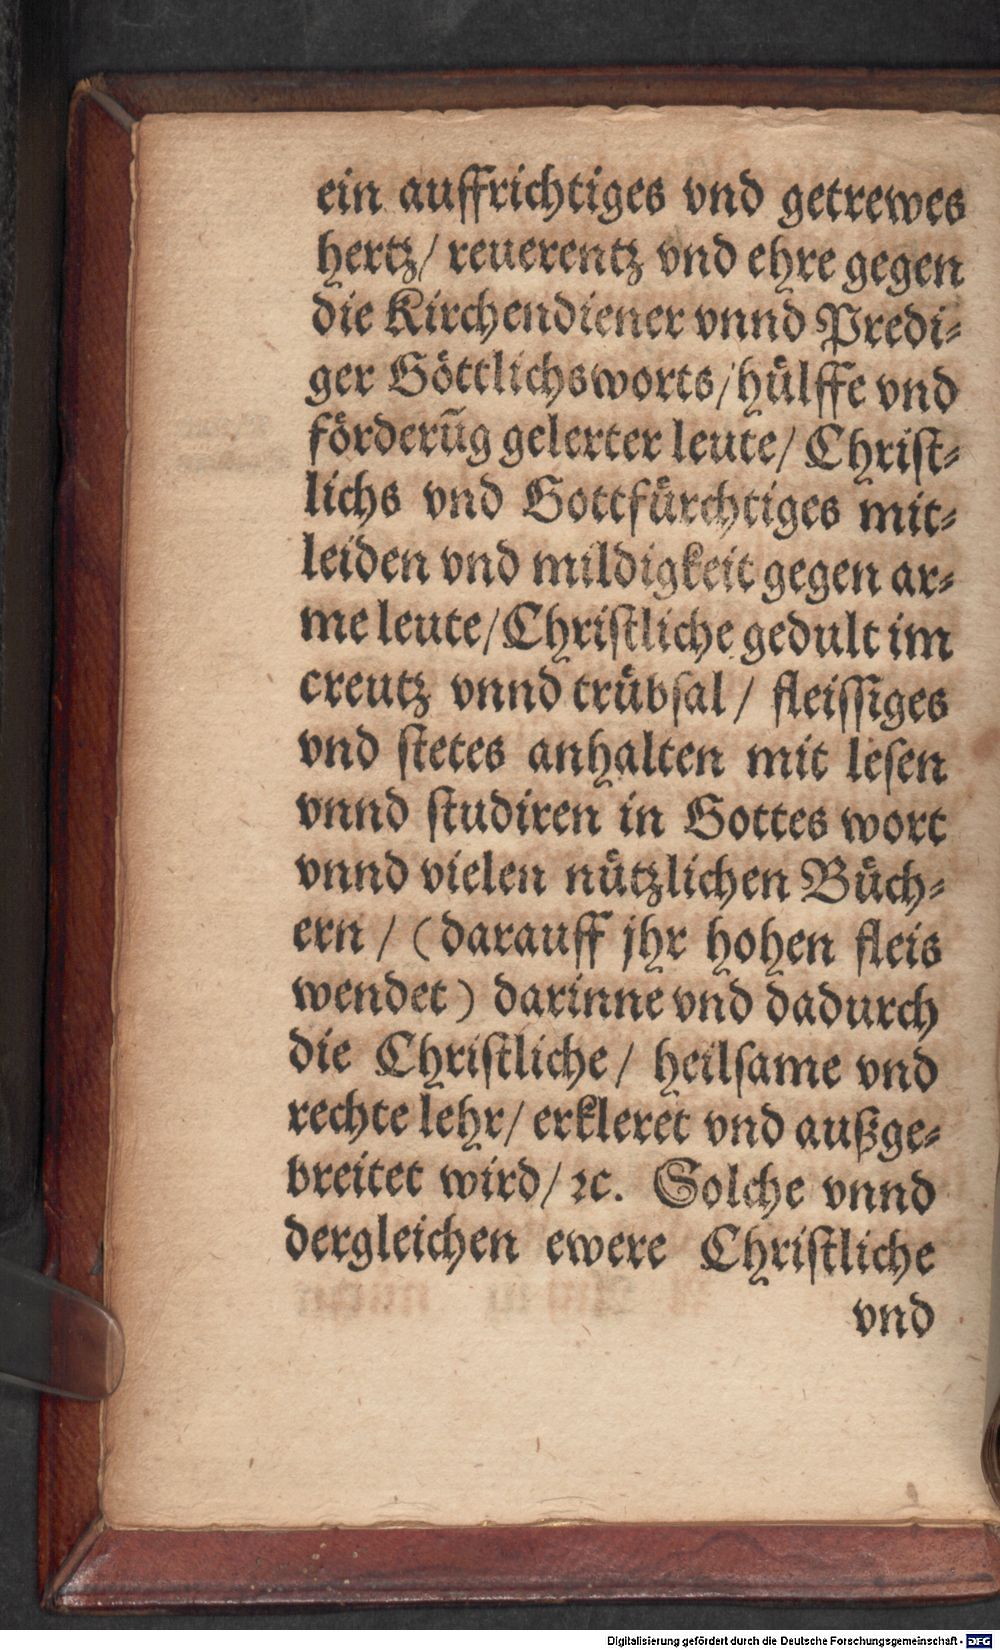 ein auffrichtiges vnd getrewes
hertz/ reuerentz vnd ehre gegen
die Kirchendiener vnnd Predi⸗
ger Göttlichsworts/ hülffe vnd
förderūg gelerter leute/ Chriſt⸗
lichs vnd Gottfürchtiges mit⸗
leiden vnd mildigkeit gegen ar⸗
me leute/ Chriſtliche gedult im
creutz vnnd trübſal/ fleiſſiges
vnd ſtetes anhalten mit leſen
vnnd ſtudiren in Gottes wort
vnnd vielen nützlichen Büch⸗
ern/ (darauff jhr hohen fleis
wendet) darinne vnd dadurch
die Chriſtliche/ heilſame vnd
rechte lehr/ erkleret vnd außge⸗
breitet wird/ ꝛc. Solche vnnd
dergleichen ewere Chriſtliche
vnd
Digitalisierung gefördert durch die Deutsche Forschungsgemeinschaft - DFG